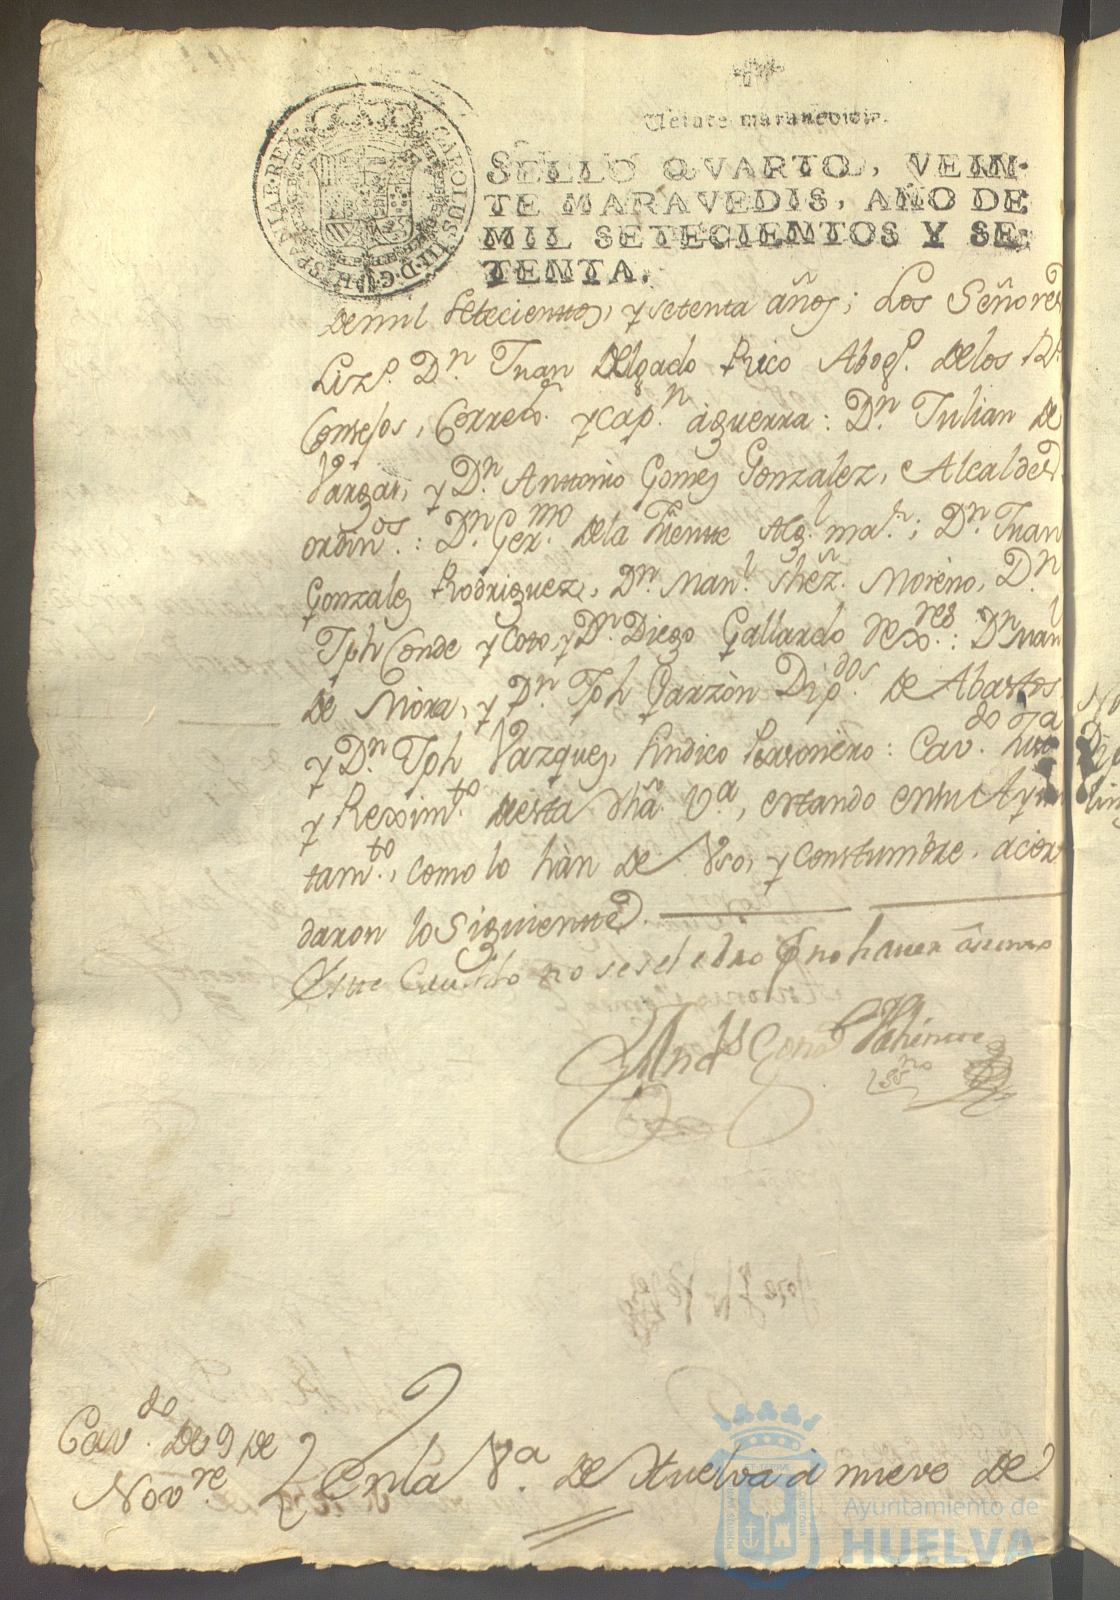 Veinte maravedis.
SELLO QVARTO, VEIN-
TE MARAVEDIS, AÑO DE
MIL SETECIENTOS Y SE-
TENTA.
CAROLUS III D G HISPANIAR REX
de mil setecientos, y setenta años; Los Señores
Lizdo. Dn. Juan Delgado Rico Abogdo. de los Rs.
Consejos, Correxor. y Capn. à guerra: Dn. Julian de
Vargas, y Dn. Anttonio Gomez Gonzalez, Alcaldes
ordinos.: Dn. Germo. de la Fuente Alg.l mar.; Dn. Juan
Gonzalez Rodriguez, Dn. Manl. Shez. Moreno, Dn.
Jph Conde y Coto, y Dn. Diego Gallardo Rexres.: Dn. Manl
de Mora, y Dn. Jph Garzòn Dipdos. de Abastos
y Dn. Jph Vazquez, Sindico Personero: Cavdo. Justa
y Reximto. desta dha. Va., estando en su Ayun
tamto., como lo hàn de uso, y constumbre, acor
daron lo Siguiente.
Este Cavildo no se selebro por no haver asumpto
Andrs Gonz Valiente
Esno
Cavdo. de 9 de
Novre.
En la Va. de Huelva à nueve de
Ayuntamiento de
HUELVA